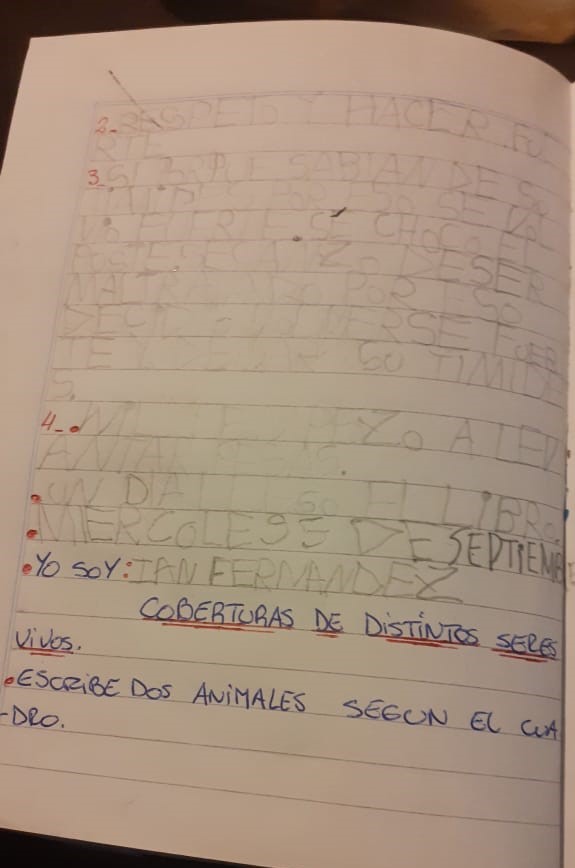 2- RESPETO Y HACER FU
RTE
3- SI PORQUE SABIAN DE SU
POR ESO SE VOL
VIO FUERTE. SE CHOCO EL
POSTE SE CANZO DE SER
MALTRATADO POR ESO
DECIDIO VOLVERSE FUER
TE Y DEJAR SU TIMIDE
S.
4- EMPEZO A LEV
ANTAR PESAS.
UN DIA EL LIBRO.
MIERCOLES 5 DE SEPTIEMB
YO SOY: IAN FERNANDEZ
COBERTURAS DE DISTINTOS SERES
VIVOS.
ESCRIBE DOS ANIMALES SEGUN EL CUA
-DRO.